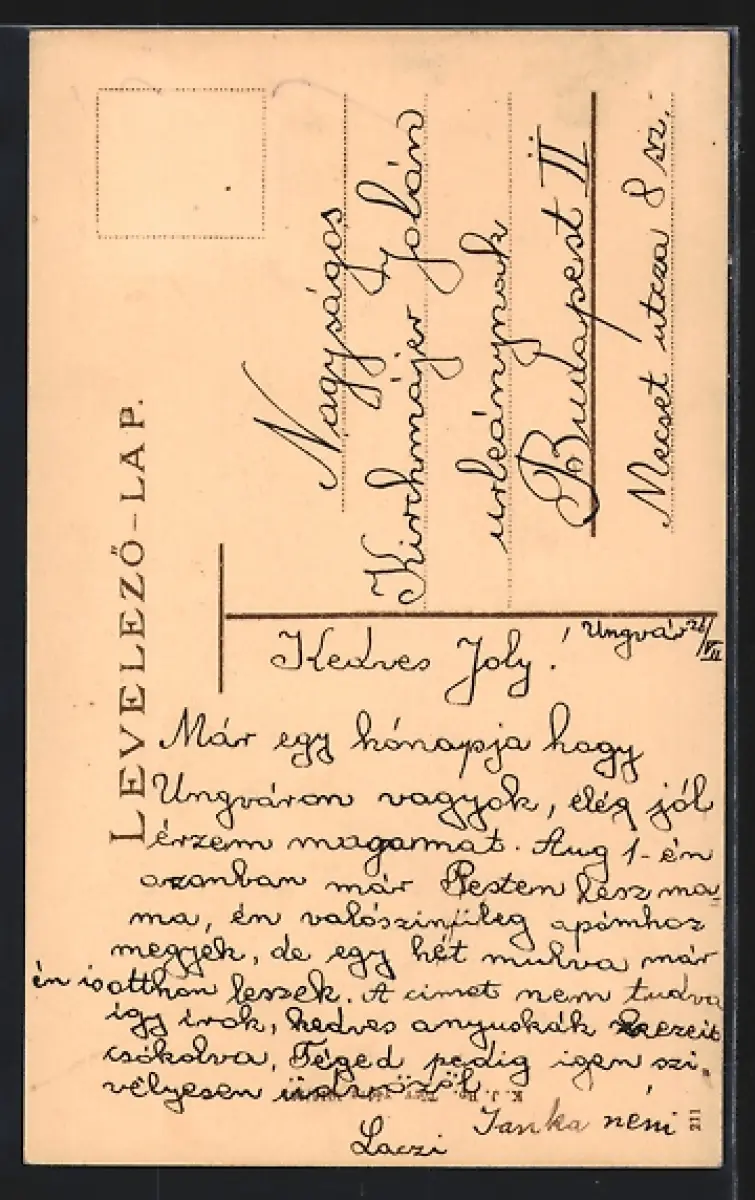 LEVELEZŐ-LAP.
Nagyságos
Kirchmájer Jolán
urleánynak
Budapest II
Mecset útcza 8 sz.
Ungvár 26/VII
Kedves Joly!
Már egy hónapja hogy
Ungváron vagyok, elég jól
érzem magamat. Aug 1-én
azonban már Pesten lesz ma-
ma, én valószinüleg apámhoz
megyek, de egy hét mulva már
én is otthon leszek. A cimet nem tudva
igy irok, kedves anyuskák kezeit
csókolva, Téged pedig igen szi-
vélyesen üdvözöl
Janka néni
Laczi
211